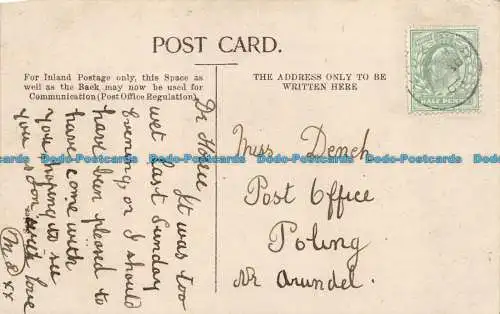 POST CARD.
For Inland Postage only, this Space as
well as the Back may now be used for
Communication (Post Office Regulation).
THE ADDRESS ONLY TO BE
WRITTEN HERE
HALF PENNY
Dr
It was too
wet last Sunday
evening, or I should
have been pleased to
have come with
you hoping to see
you soon with love
xx
Miss Dench
Post Office
Poling
Nr Arundel.
Dodo-Postcards Dodo-Postcards Dodo-Postcards Dodo-Postcards Dodo-Postcards Dodo-Postcards